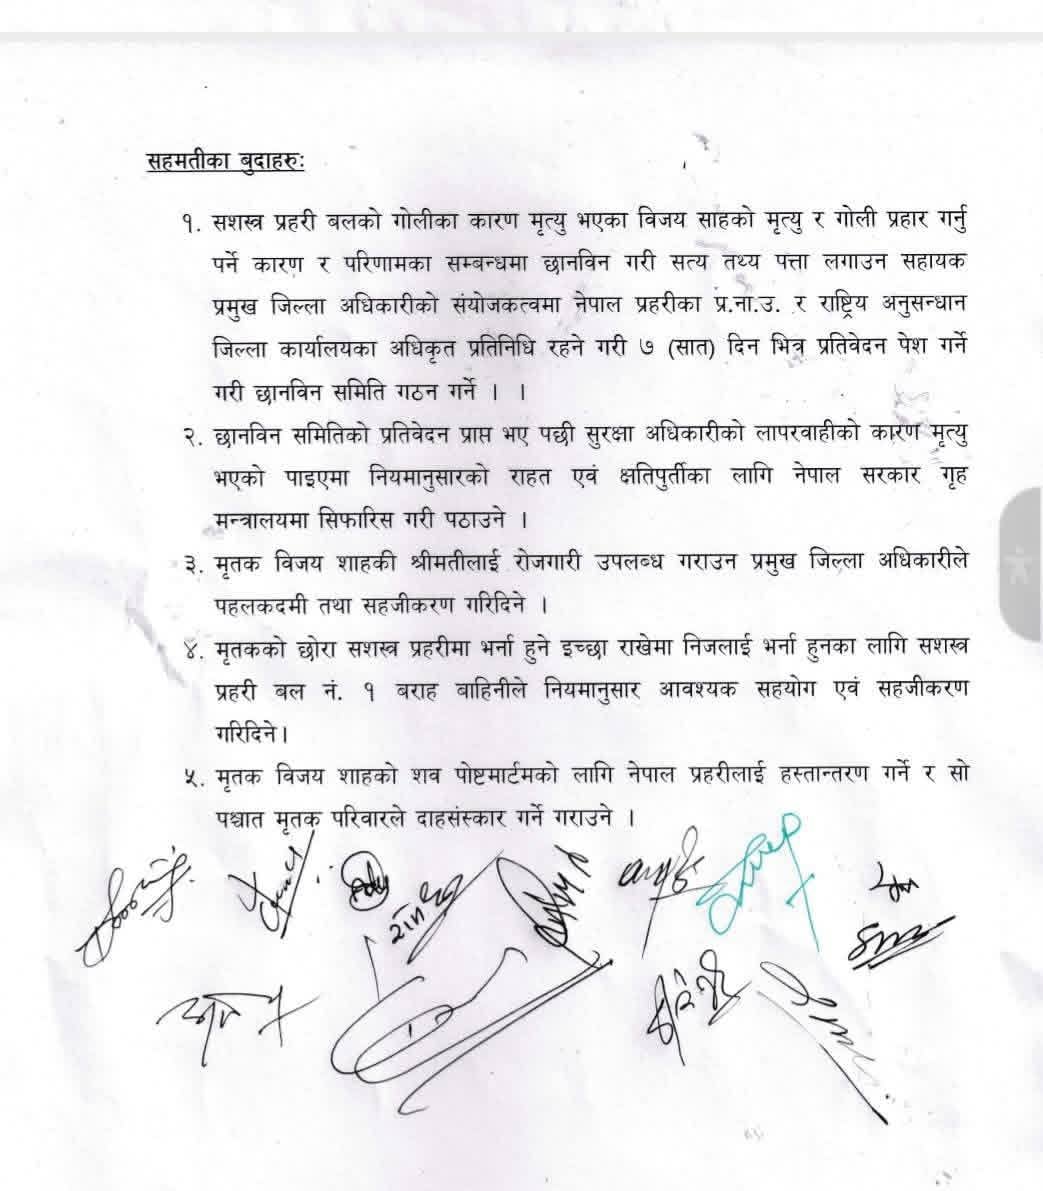 सहमतीका बुदाहरुः
१. सशस्त्र प्रहरी बलको गोलीका कारण मृत्यु भएका विजय साहको मृत्यु र गोली प्रहार गर्नु
पर्ने कारण र परिणामका सम्बन्धमा छानविन गरी सत्य तथ्य पत्ता लगाउन सहायक
प्रमुख जिल्ला अधिकारीको संयोजकत्वमा नेपाल प्रहरीका प्र.ना.उ. र राष्ट्रिय अनुसन्धान
जिल्ला कार्यालयका अधिकृत प्रतिनिधि रहने गरी ७ (सात) दिन भित्र प्रतिवेदन पेश गर्ने
गरी छानविन समिति गठन गर्ने । ।
२. छानविन समितिको प्रतिवेदन प्राप्त भए पछी सुरक्षा अधिकारीको लापरवाहीको कारण मृत्यु
भएको पाइएमा नियमानुसारको राहत एवं क्षतिपुर्तीका लागि नेपाल सरकार गृह
मन्त्रालयमा सिफारिस गरी पठाउने ।
३. मृतक विजय शाहकी श्रीमतीलाई रोजगारी उपलब्ध गराउन प्रमुख जिल्ला अधिकारीले
पहलकदमी तथा सहजीकरण गरिदिने ।
४. मृतकको छोरा सशस्त्र प्रहरीमा भर्ना हुने इच्छा राखेमा निजलाई भर्ना हुनका लागि सशस्त्र
प्रहरी बल नं. १ बराह बाहिनीले नियमानुसार आवश्यक सहयोग एवं सहजीकरण
गरिदिने।
५. मृतक विजय शाहको शव पोष्टमार्टमको लागि नेपाल प्रहरीलाई हस्तान्तरण गर्ने र सो
पश्चात मृतक परिवारले दाहसंस्कार गर्ने गराउने ।